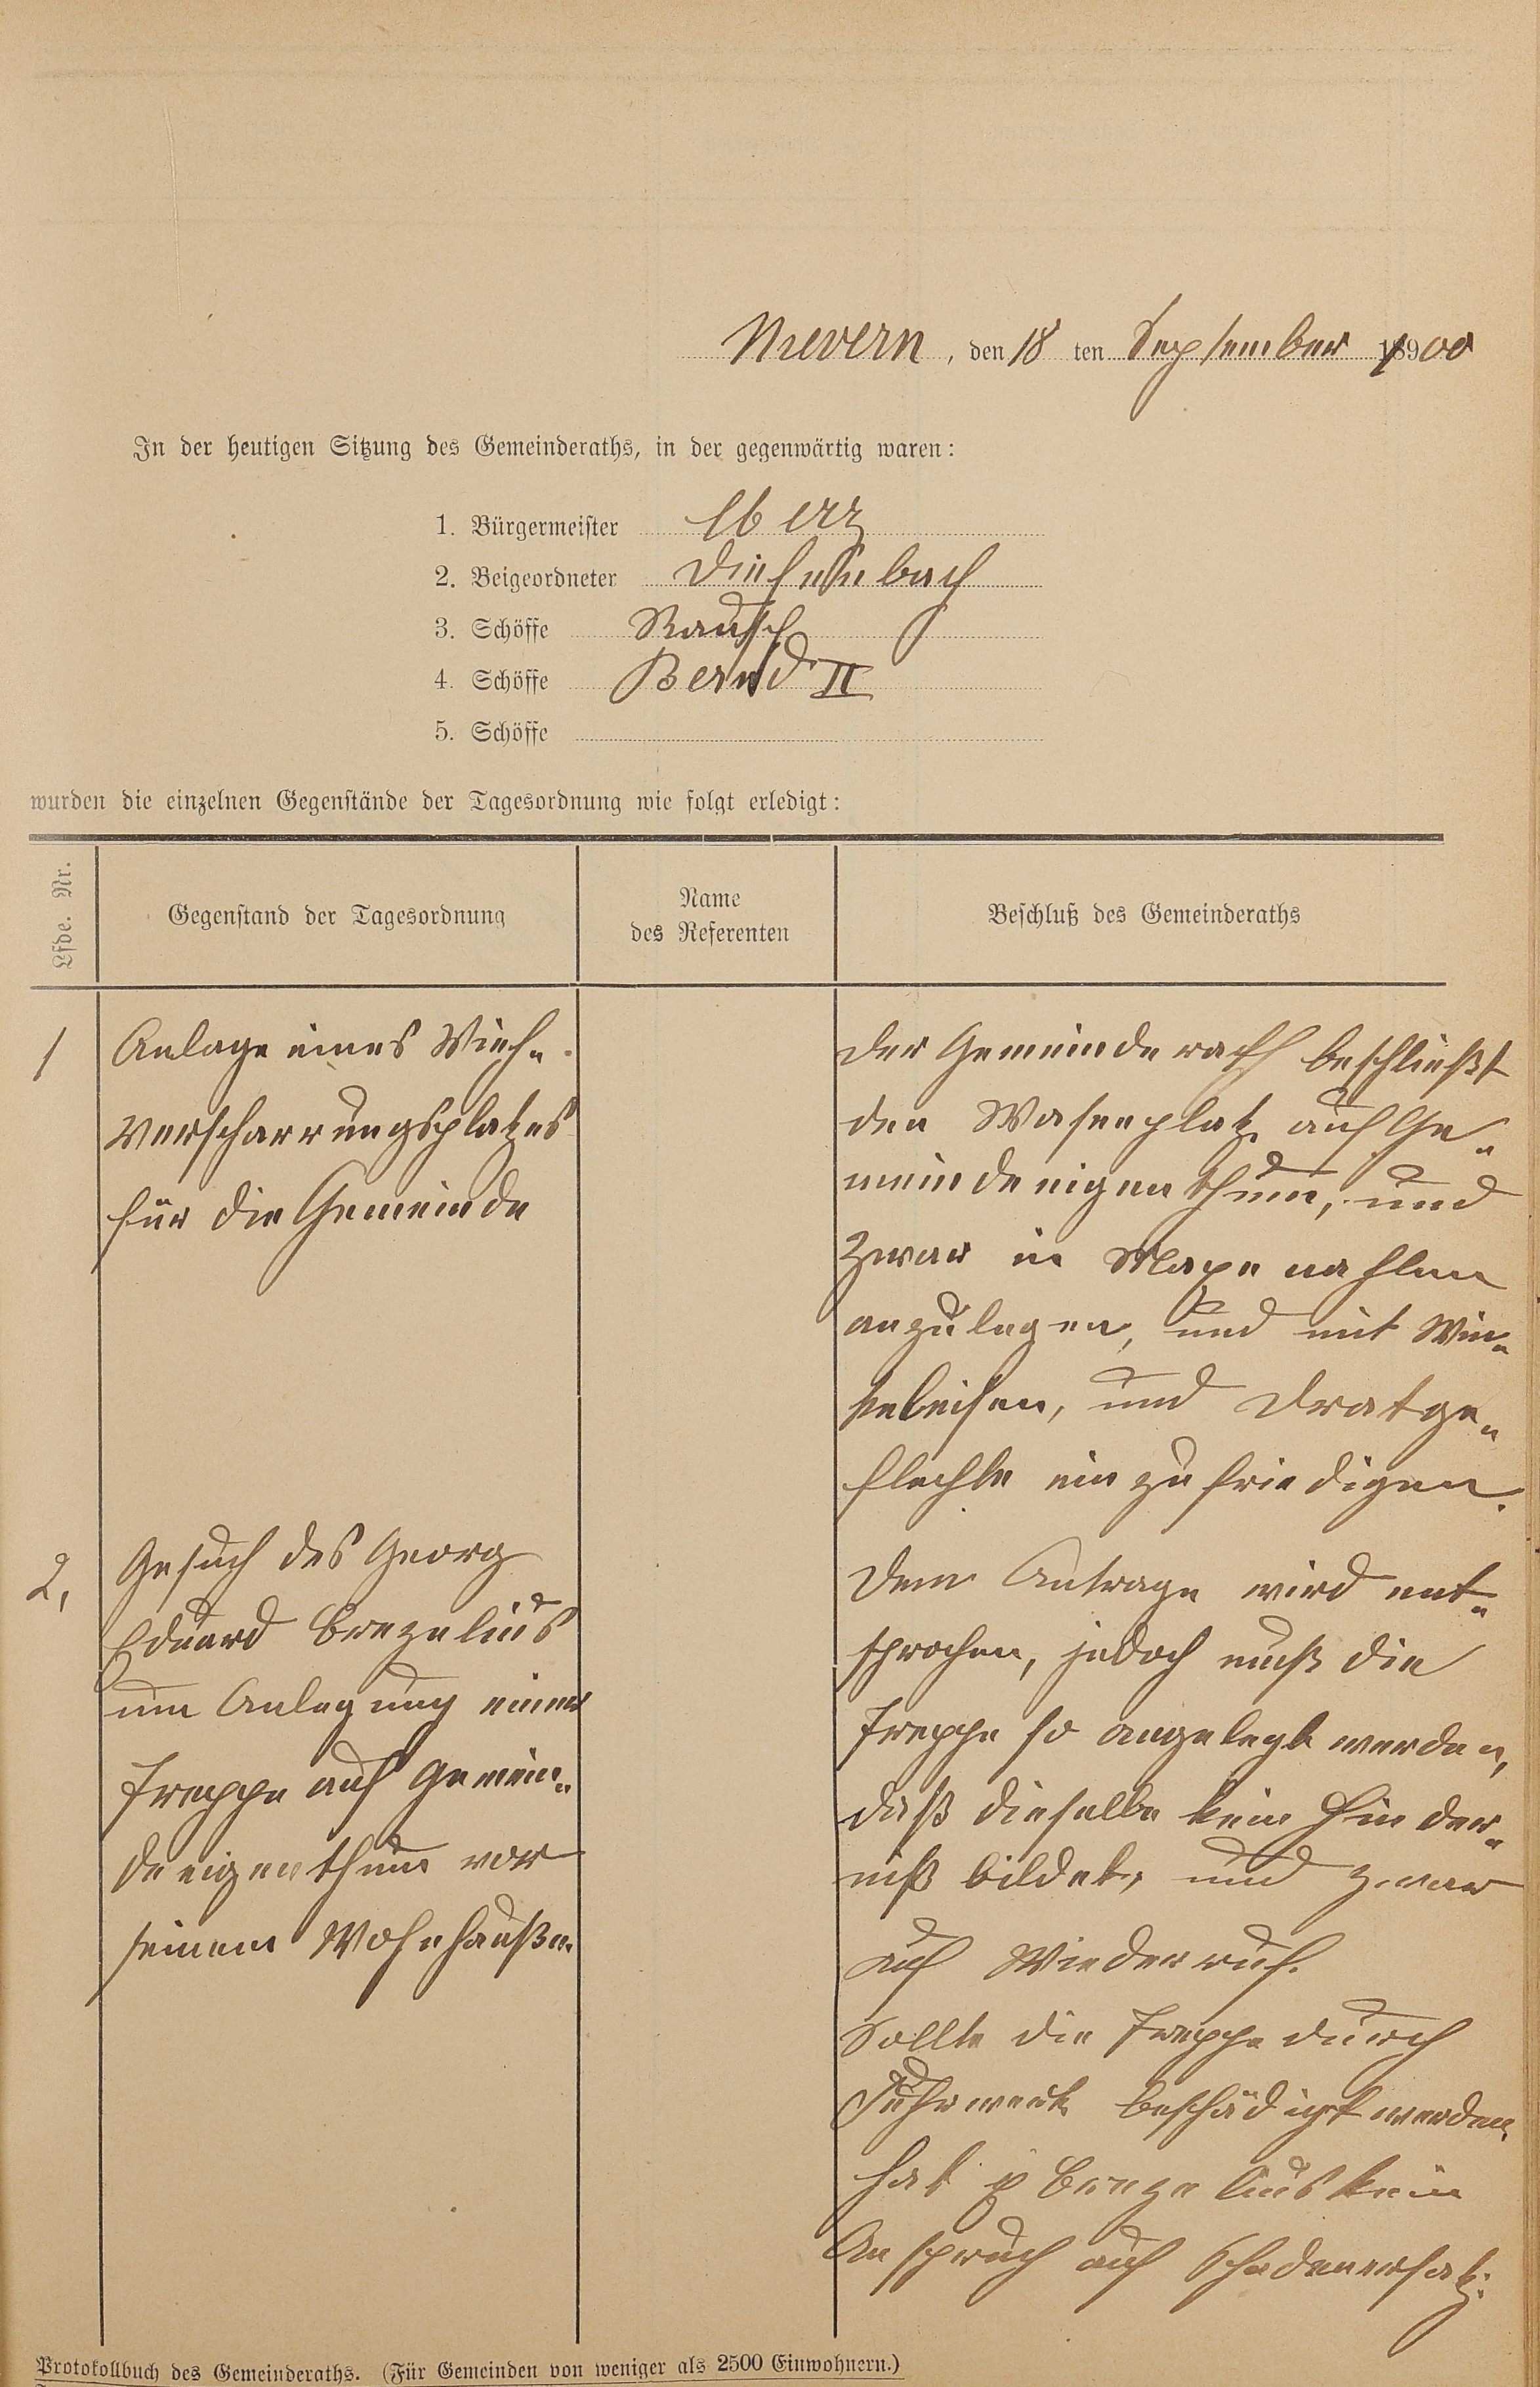 Nievern, den 18 ten September 1900
In der heutigen Sitzung des Gemeinderaths, in der gegenwärtig waren:
1. Bürgermeister Eberz
2. Beigeordneter Diefenbach
3. Schöffe Rausch
4. Schöffe Bernd II
5. Schöffe
wurden die einzelnen Gegenstände der Tagesordnung wie folgt erledigt:
Lfde. Nr.
Gegenstand der Tagesordnung
Name
des Referenten
Beschluß des Gemeinderaths
1
Anlage eines Vieh-
verscharrungsplatzes
für die Gemeinde
Der Gemeinderath beschließt
den Wasenplatz auf Ge-
meindeeigenthum, und
zwar in
anzulegen, und mit Win-
keleisen, und Dratge-
flechte einzufriedigen.
2,
Gesuch des Georg
Eduard Brezelius
um Anlegung einer
Treppe auf Gemein-
deeigenthum vor
seinem Wohnhauße.
Dem Antrage wird ent-
sprochen, jedoch muß die
Treppe so angelegt werden,
daß dieselbe kein Hinder-
niß bildet, und zwar
auf Wiederruf.
Sollte die Treppe durch
Fuhrwerk beschädigt werden,
hat p Brezelius kein
Anspruch auf Schadenersatz.
Protokollbuch des Gemeinderaths. (Für Gemeinden von weniger als 2500 Einwohnern.)